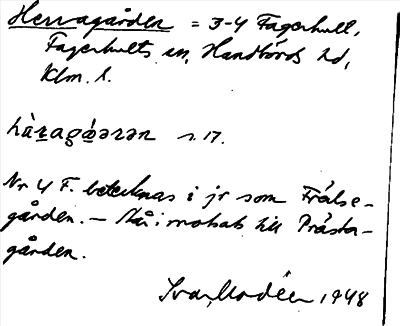 Herragården = 3-4 Fagerhult,
Fagerhults sn, Handbörds hd,
Klm. l.
hàragǿərən s. 17.
Nr 4 F. betecknas i jr som Frälse-
gården. – Står i motsats till Prästa-
gården.
Ivar Modéer 1948